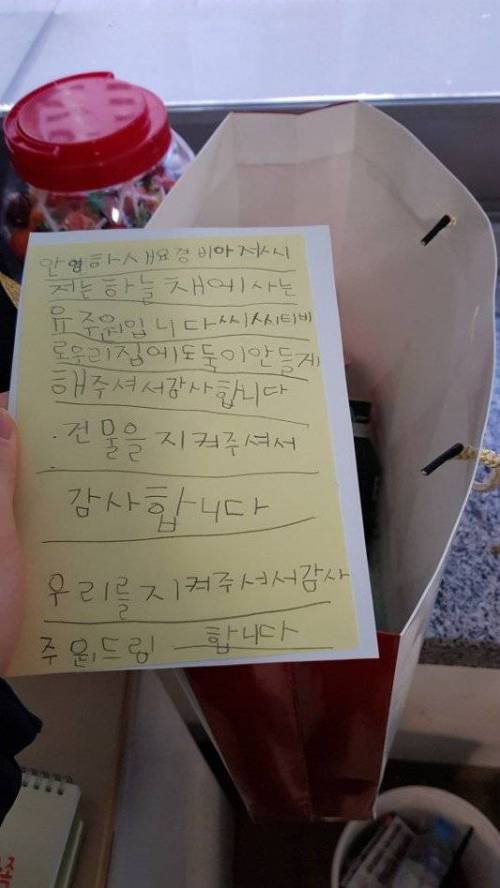 안녕하새요경비아저씨
저는하늘채에사는
유주원입니다씨씨티비
로우리집에도둑이안들게
해주셔서감사합니다
.건물을지켜주셔서
감사합니다
우리를지켜주셔서감사
주원드림 합니다